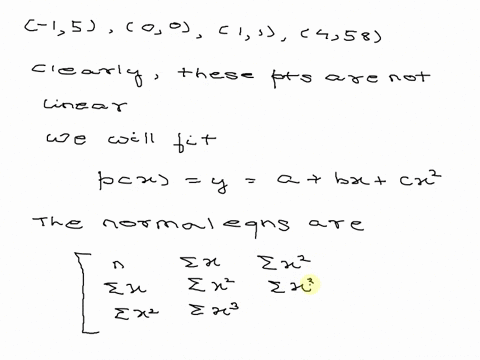 (-1,5), (0,0), (1,1), (4,58)
Clearly, these pts are not
linear
We will fit
p(x) = y = a + bx + cx²
The normal eqns are
n Σx Σx²
Σx Σx² Σx³
Σx² Σx³